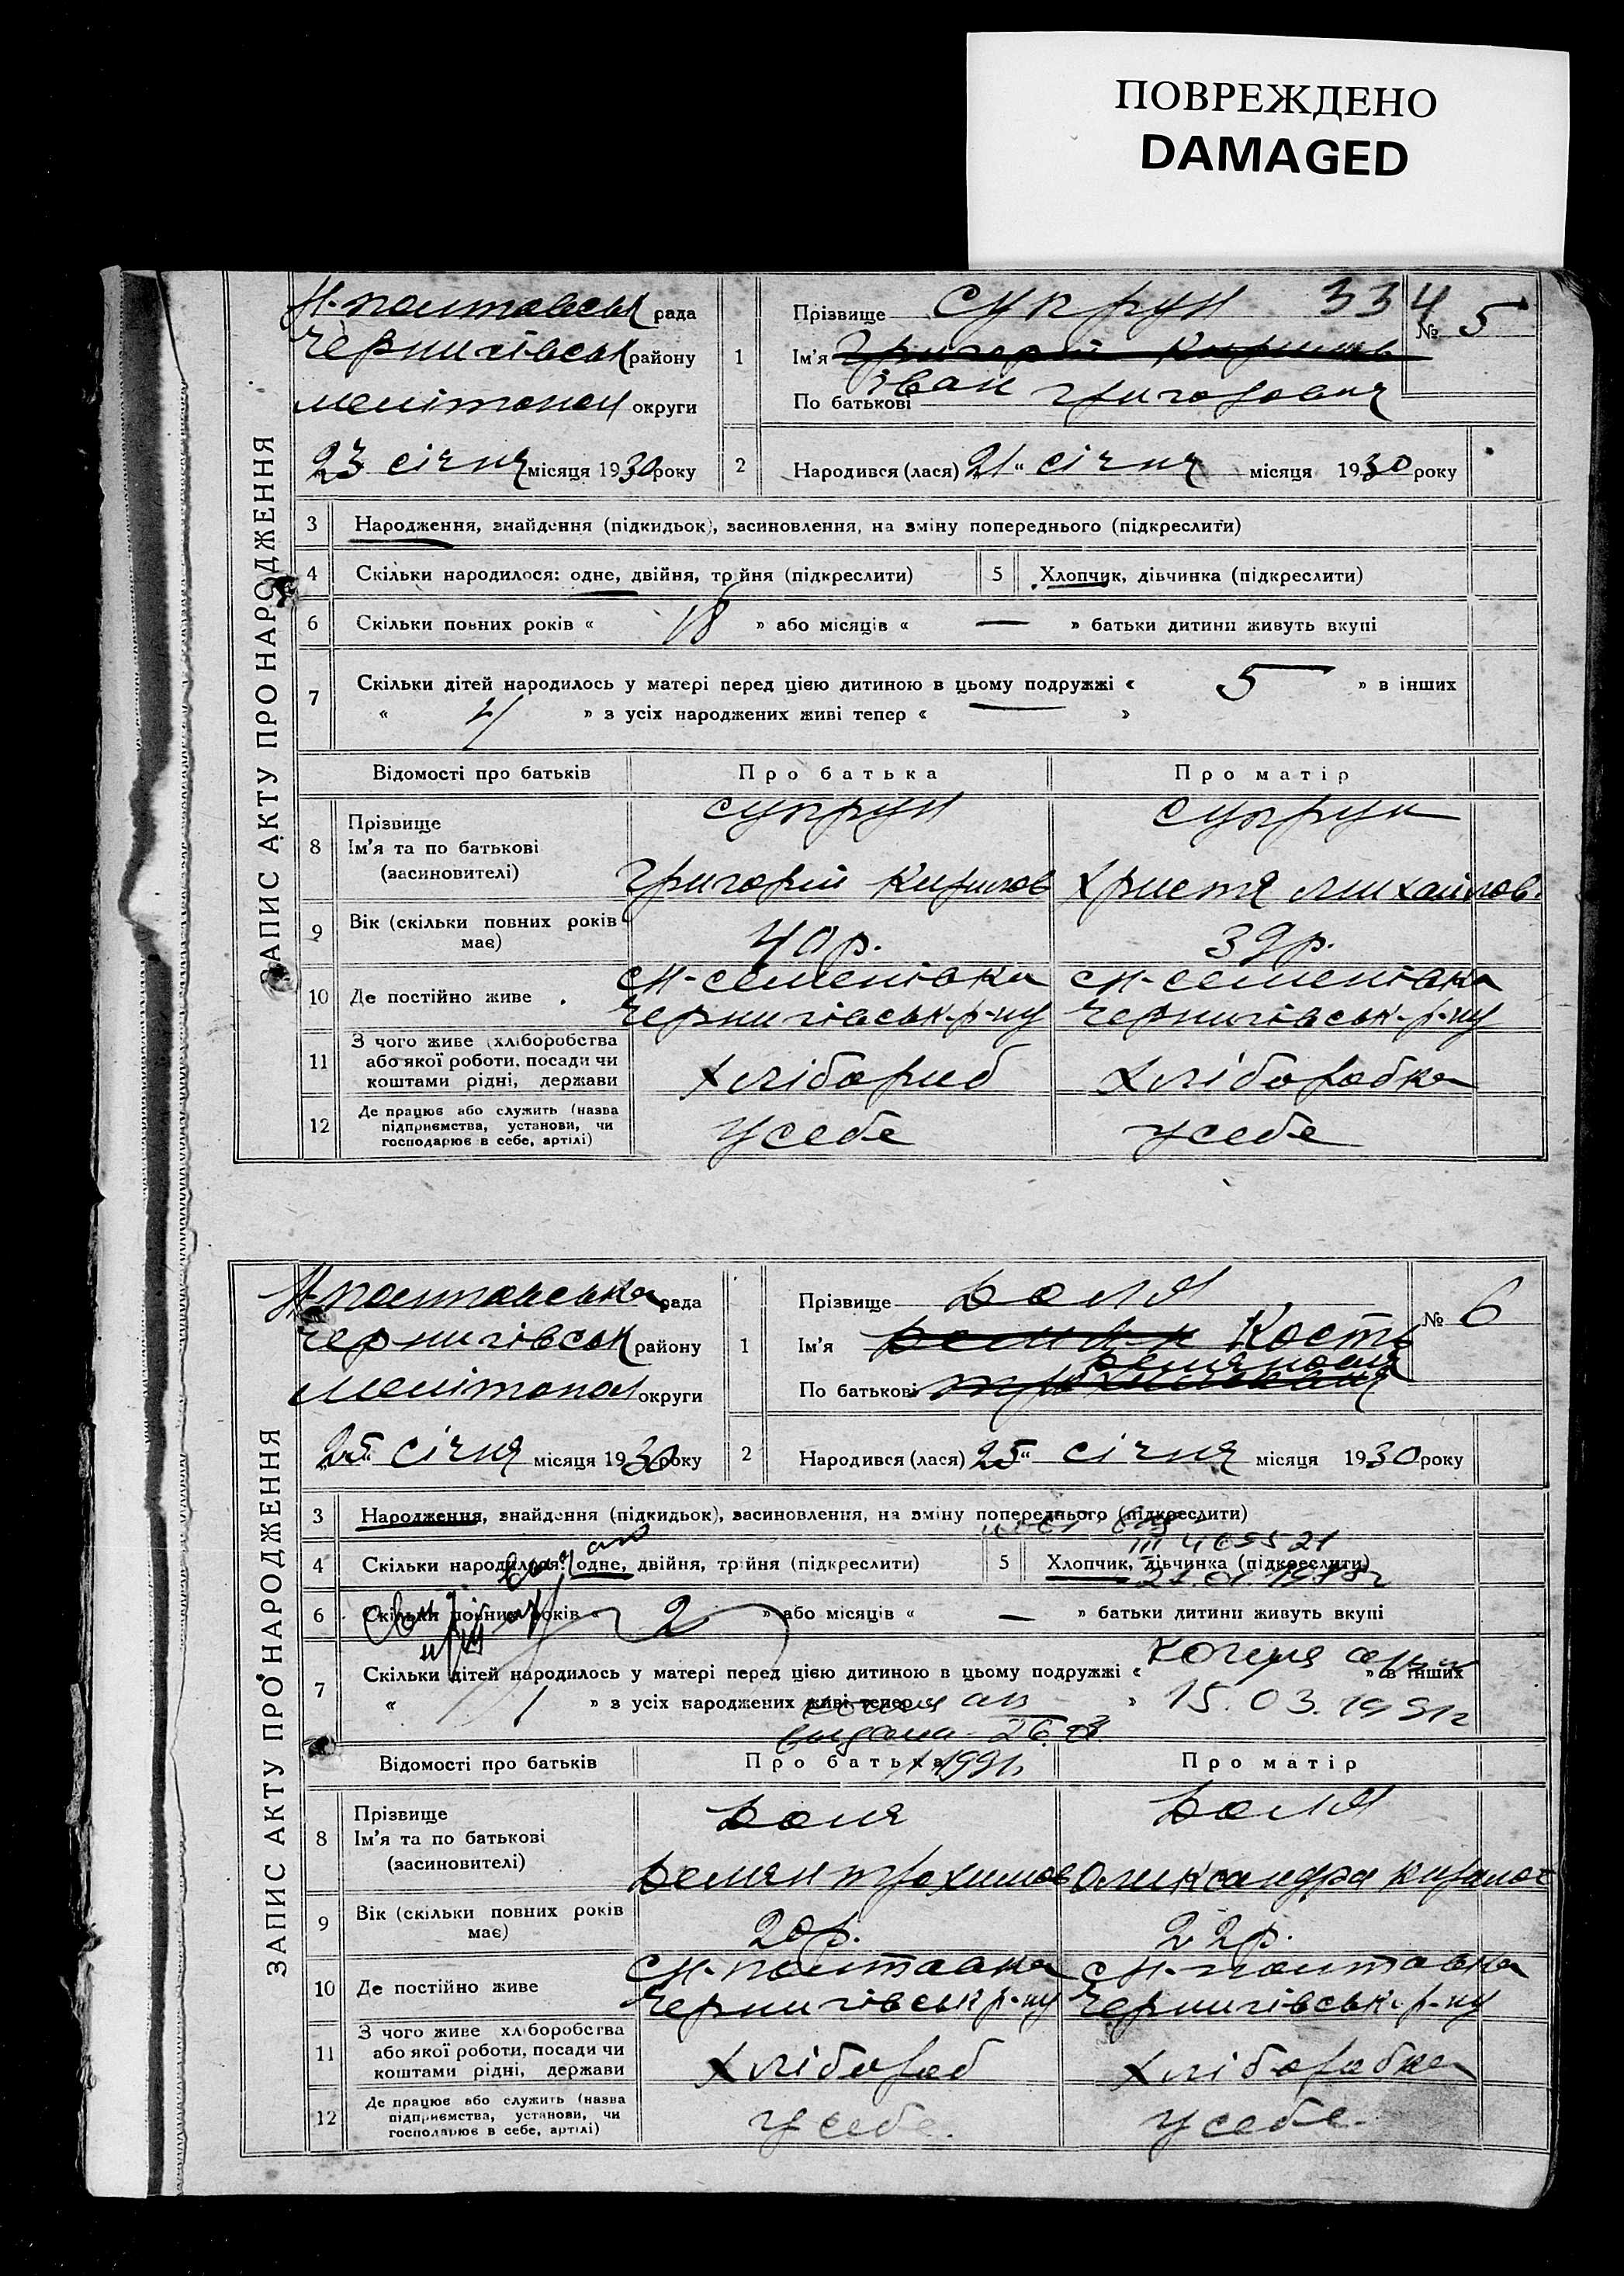 ПОВРЕЖДЕНО
DAMAGED
ЗАПИС АКТУ ПРО НАРОДЖЕННЯ
Н-полтавськ рада
Чернигівськ району
мелітопол округи
23 січня місяця 1930 року
1 Прізвище Супрун 334 № 5
Ім'я Григорій Кирилов
Іван
По батькові Григорович
2 Народився (лася) 21 “ січня місяця 1930 року
3 Народження, знайдення (підкидьок), засиновлення, на зміну попереднього (підкреслити)
4 Скільки народилося: одне, двійня, трійня (підкреслити) 5 Хлопчик, дівчинка (підкреслити)
6 Скільки повних років « 18 » або місяців « — » батьки дитини живуть вкупі
7 Скільки дітей народилось у матері перед цією дитиною в цьому подружжі « 5 » в інших
« 4 » з усіх народжених живі тепер « — »
Відомості про батьків Про батька Про матір
8 Прізвище Супрун Супрун
Ім'я та по батькові
(засиновителі) Григорій Кирилов Христя Михайлов.
9 Вік (скільки повних років має) 40 р. 39 р.
10 Де постійно живе с Н-Семенівка с Н-Семенівка
Чернигівськ. р-ну Чернигівськ. р-ну
11 З чого живе (хліборобства
або якої роботи, посади чи
коштами рідні, держави хлібороб хліборобка
12 Де працює або служить (назва
підприємства, установи, чи
господарює в себе, артілі) у себе у себе
ЗАПИС АКТУ ПРО НАРОДЖЕННЯ
Н-полтавська рада
Чернигівськ району
Мелітопол округи
„25“ січня місяця 1930 року
1 Прізвище Доля № 6
Ім'я Демян Кость
Демянович
По батькові Трохимович
2 Народився (лася) 25 “ січня місяця 1930 року
3 Народження, знайдення (підкидьок), засиновлення, на зміну попереднього (підкреслити)
III 465521
4 Скільки народилося: одне, двійня, трійня (підкреслити) 5 Хлопчик, дівчинка (підкреслити)
6 Скільки повних років « 2 » або місяців « — » батьки дитини живуть вкупі
7 Скільки дітей народилось у матері перед цією дитиною в цьому подружжі « » в інших
« 1 » з усіх народжених живі тепер « » 15.03.1991г
26.03
1991г
Відомості про батьків Про батька Про матір
8 Прізвище Доля Доля
Ім'я та по батькові
(засиновителі) Демян Трохимов Олександра Кирилов
9 Вік (скільки повних років має) 20 р. 22 р.
10 Де постійно живе с Н-Полтавка с Н-Полтавка
Чернигівськ р-ну Чернигівськ. р-ну
11 З чого живе хліборобства
або якої роботи, посади чи
коштами рідні, держави хлібороб хліборобка
12 Де працює або служить (назва
підприємства, установи, чи
господарює в себе, артілі) у себе. у себе.